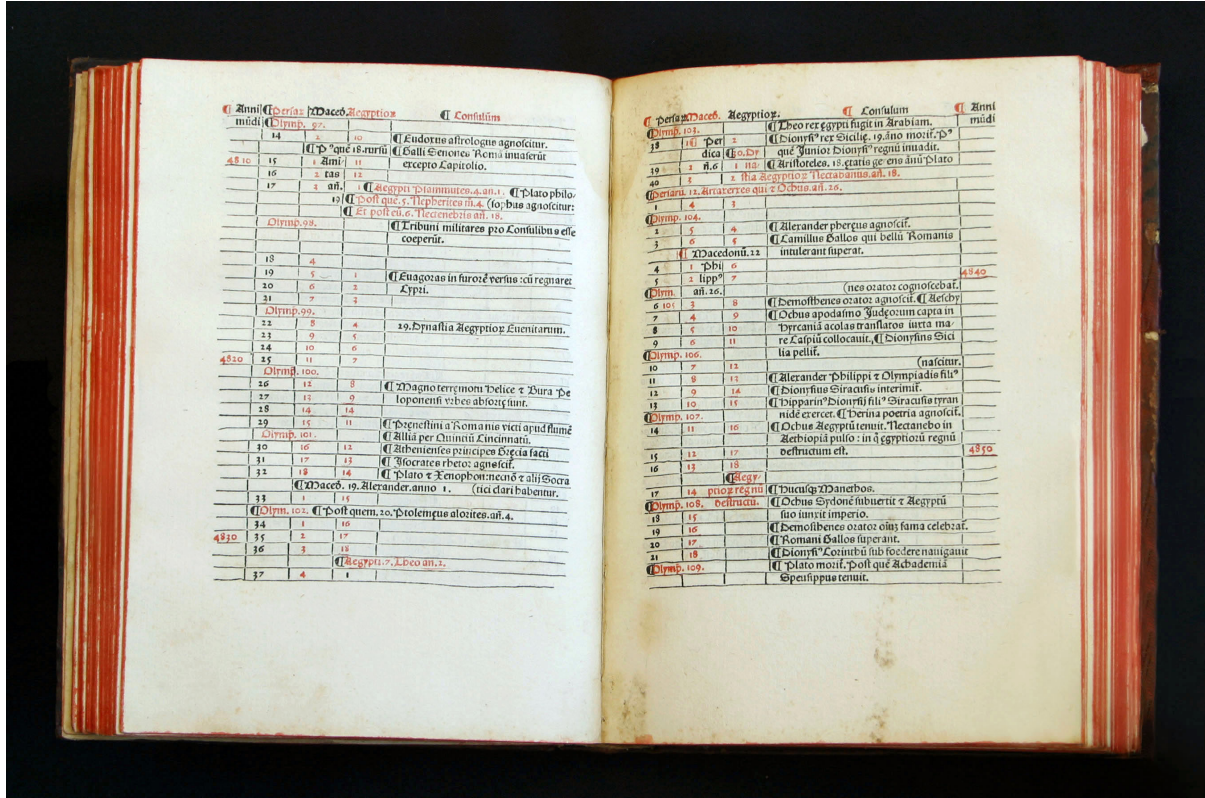 ¶ Anni ¶ Persaꝝ Macedͦ. Aegyptioꝝ ¶ Consulū
mūdi ¶ Olymp. 97.
14 2 10 ¶ Eudoxus astrologus agnoscitur.
¶ Pͦ quē 18. rursū ¶ Galli Senones Romā inuaserūt
4810 15 1 Ami 11 excepto Capitolio.
16 2 tas 12
17 3 añ. 1 ¶ Aegypti Psammutes. 4. an. 1. ¶ Plato philo-
19 ¶ Post quē. 5. Nepherites m̄. 4. (sophus agnoscitur:
¶ Et post eū. 6. Nectenebris añ. 18.
Olymp. 98. ¶ Tribuni militares pro Consulibus esse
coeperūt.
18 4
19 5 1 ¶ Euagoras in furorē versus: cū regnaret
20 6 2 Cypri.
21 7 3
Olymp. 99.
22 8 4 29. Dynastia Aegyptioꝝ Euenitarum.
23 9 5
24 10 6
4820 25 11 7
Olymp. 100.
26 12 8 ¶ Magno terremotu Helice ⁊ Bura Pe
27 13 9 loponensi vrbes absorpt sunt.
28 14 14
29 15 11 ¶ Prenestini a Romanis victi apud flumē
Olymp. 101. ¶ Alliā per Quintiū Cincinnatū.
30 16 12 ¶ Athenienses principes Gręcia facti
31 17 13 ¶ Isocrates rhetor agnoscit̄.
32 18 14 ¶ Plato ⁊ Xenophon: necnō ⁊ alij Socra
¶ Maced. 19. Alexander. anno 1. (tici clari habentur.
33 1 15
¶ Olym. 102. ¶ Post quem. 20. Ptolemęus alorites. añ. 4.
34 1 16
4830 35 2 17
36 3 18
¶ Aegypt. 7. Theo an. 2.
37 4 1
¶ Persaꝝ Maced. Aegyptioꝝ. ¶ Consulum ¶ Anni
Olymp. 103. ¶ Theo rex ęgypti fugit in Arabiam. mūdi
38 1 ¶ Per 2 ¶ Dionysiꝰ rex Sicilię. 19. āno morit̄. Pͦ
dica ¶ 30. Dy quē Junior Dionysiꝰ regnū inuadit.
39 2 ñ. 6 1 na- ¶ Aristoteles. 18. ętatis ge-ens ānū Plato
40 3 2 stia Aegyptioꝝ Nectabanus. añ. 18.
¶ Persarū. 12. Artaxerxes qui ⁊ Ochus. añ. 26.
1 4 3
¶ Olymp. 104.
2 5 4 ¶ Alexander pheręus agnoscit̄.
3 6 5 ¶ Camillus Gallos qui bellū Romanis
¶ Macedonū. 22 intulerant superat.
4 1 Phi 6
5 2 lippꝰ 7 4840
¶ Olym. añ. 26. (nes orator cognoscebat.
6 105 3 8 ¶ Demosthenes orator agnoscit̄. ¶ Aeschy
7 4 9 ¶ Ochus apodasmo Judęorum capta in
8 5 10 Hyrcaniā acolas translatos iuxta ma-
9 6 11 re Caspiū collocauit. ¶ Dionysius Sici
¶ Olymp. 106. lia pellit̄.
10 7 12 (nascitur.
11 8 13 ¶ Alexander Philippi ⁊ Olympiadis filiꝰ
12 9 14 ¶ Dionysius Siracusis interimit̄.
13 10 15 ¶ Hipparinꝰ Dionysij filiꝰ Siracusis tyran
¶ Olymp. 107. nidē exercet. ¶ Herina poetria agnoscit̄.
14 11 16 ¶ Ochus Aegyptū tenuit. Nectanebo in
Aethiopiā pulso: in q̄ ęgyptiorū regnū
15 12 17 destructum est. 4850
16 13 18
¶ Aegy-
17 14 ptioꝝ regnū ¶ Hucusqꝫ Manethos.
¶ Olymp. 108. destructū. ¶ Ochus Sydonē subuertit ⁊ Aegyptū
18 15 suo iunxit imperio.
19 16 ¶ Demosthenes orator oīuꝫ fama celebrat̄.
20 17 ¶ Romani Gallos superant.
21 18 ¶ Dionysiꝰ Corinthū sub foedere nauigauit
¶ Olymp. 109. ¶ Plato morit̄. Post quē Achademiā
Speusippus tenuit.